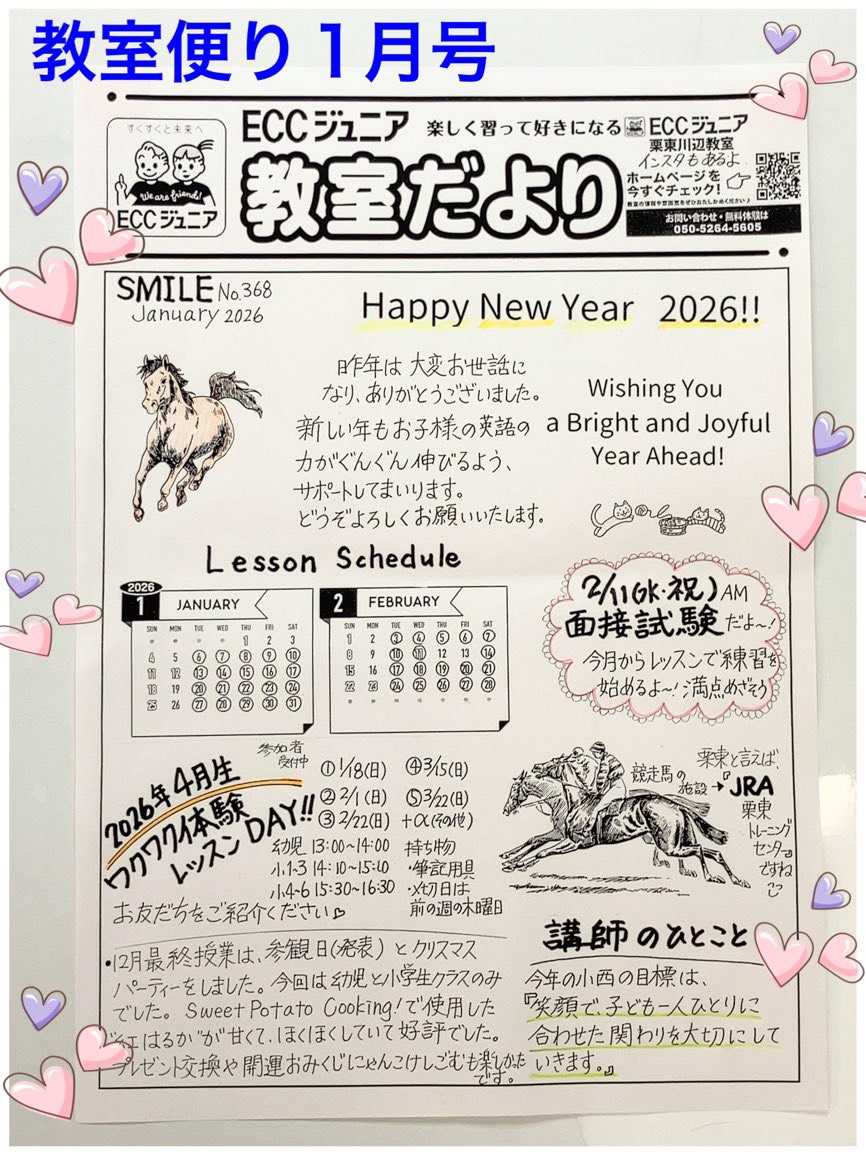 教室便り1月号
すくすくと未来へ
We are friends!
ECCジュニア
ECCジュニア 楽しく習って好きになる
教室だより
ECCジュニア
栗東川辺教室
インスタもあるよ
ホームページを
今すぐチェック!
教室の情報や雰囲気をぜひおたしかめください♪
お問い合わせ・無料体験は
050-5264-5605
SMILE No.368
January 2026
Happy New Year 2026!!
昨年は大変お世話に
なり、ありがとうございました。
新しい年もお子様の英語の
力がぐんぐん伸びるよう、
サポートしてまいります。
どうぞよろしくお願いいたします。
Wishing You
a Bright and Joyful
Year Ahead!
Lesson Schedule
2026
1 JANUARY
SUN MON TUE WED THU FRI SAT
1 2 3
4 5 6 7 8 9 10
11 12 13 14 15 16 17
18 19 20 21 22 23 24
25 26 27 28 29 30 31
2 FEBRUARY
SUN MON TUE WED THU FRI SAT
1 2 3 4 5 6 7
8 9 10 11 12 13 14
15 16 17 18 19 20 21
22 23 24 25 26 27 28
2/11(水・祝)AM
面接試験だよ〜!
今月からレッスンで練習を
始めるよ〜!満点めざそう
参加者
受付中
2026年4月生
ワクワク体験
レッスンDAY!!
①1/18(日) ④3/15(日)
②2/1(日) ⑤3/22(日)
③2/22(日) +α(その他)
幼児 13:00〜14:00
小1-3 14:10〜15:10
小4-6 15:30〜16:30
持ち物
・筆記用具
・〆切日は
前の週の木曜日
お友だちをご紹介ください♡
栗東と言えば、
競走馬の
施設→『JRA
栗東
トレーニング
センター』
ですね
・12月最終授業は、参観日(発表)とクリスマス
パーティーをしました。今回は幼児と小学生クラスのみ
でした。Sweet Potato Cooking!で使用した
"紅はるか"が甘くて、ほくほくしていて好評でした。
プレゼント交換や開運おみくじにゃんこけしごむも楽しかった
です。
講師のひとこと
今年の小西の目標は、
『笑顔で、子ども一人ひとりに
合わせた関わりを大切にして
いきます。』